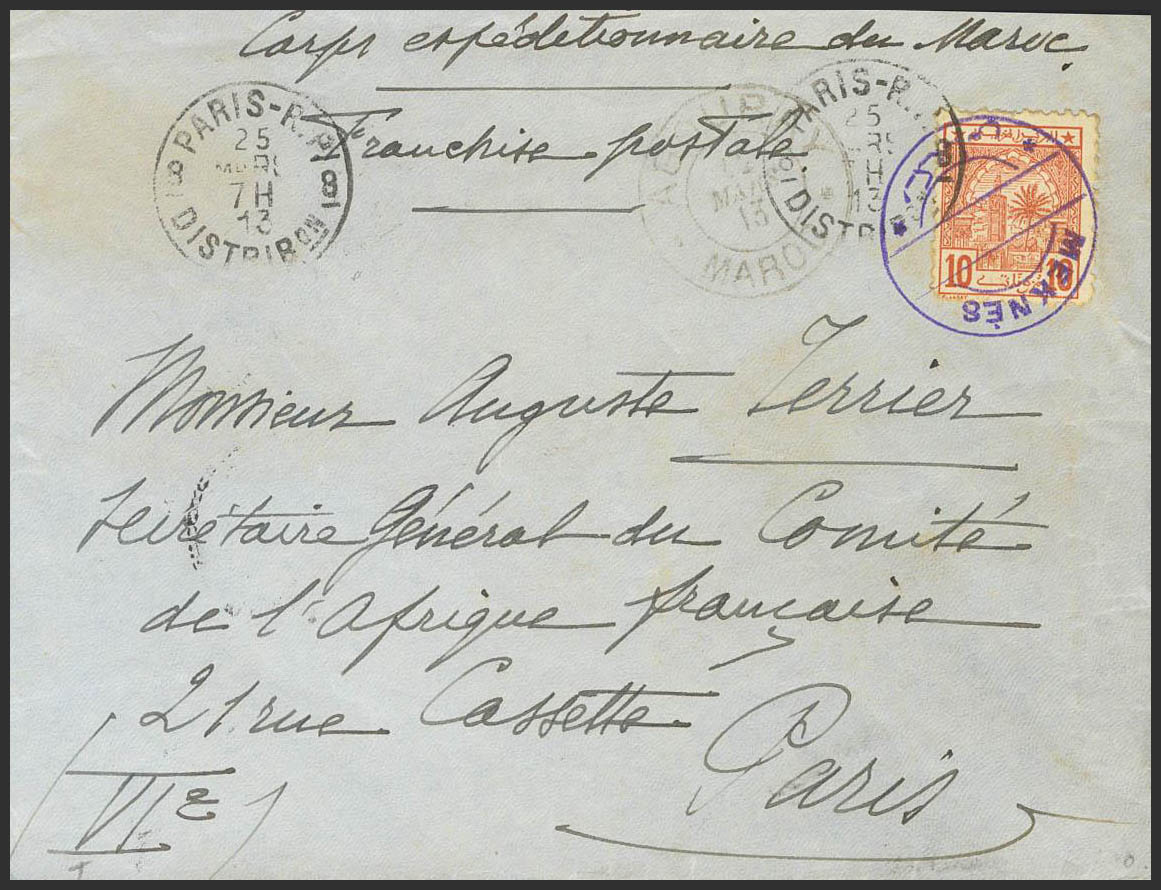 Corps expéditionnaire du Maroc
Franchise postale
PARIS-R.P.
25
7H
13
DISTRIBON
18
MAROC
13
PARIS-R.P.
25
H
13
MEKNÈS
10 10
Monsieur Auguste Terrier
Secrétaire Général du Comité
de l'Afrique française
21 rue Cassette
Paris
VIe